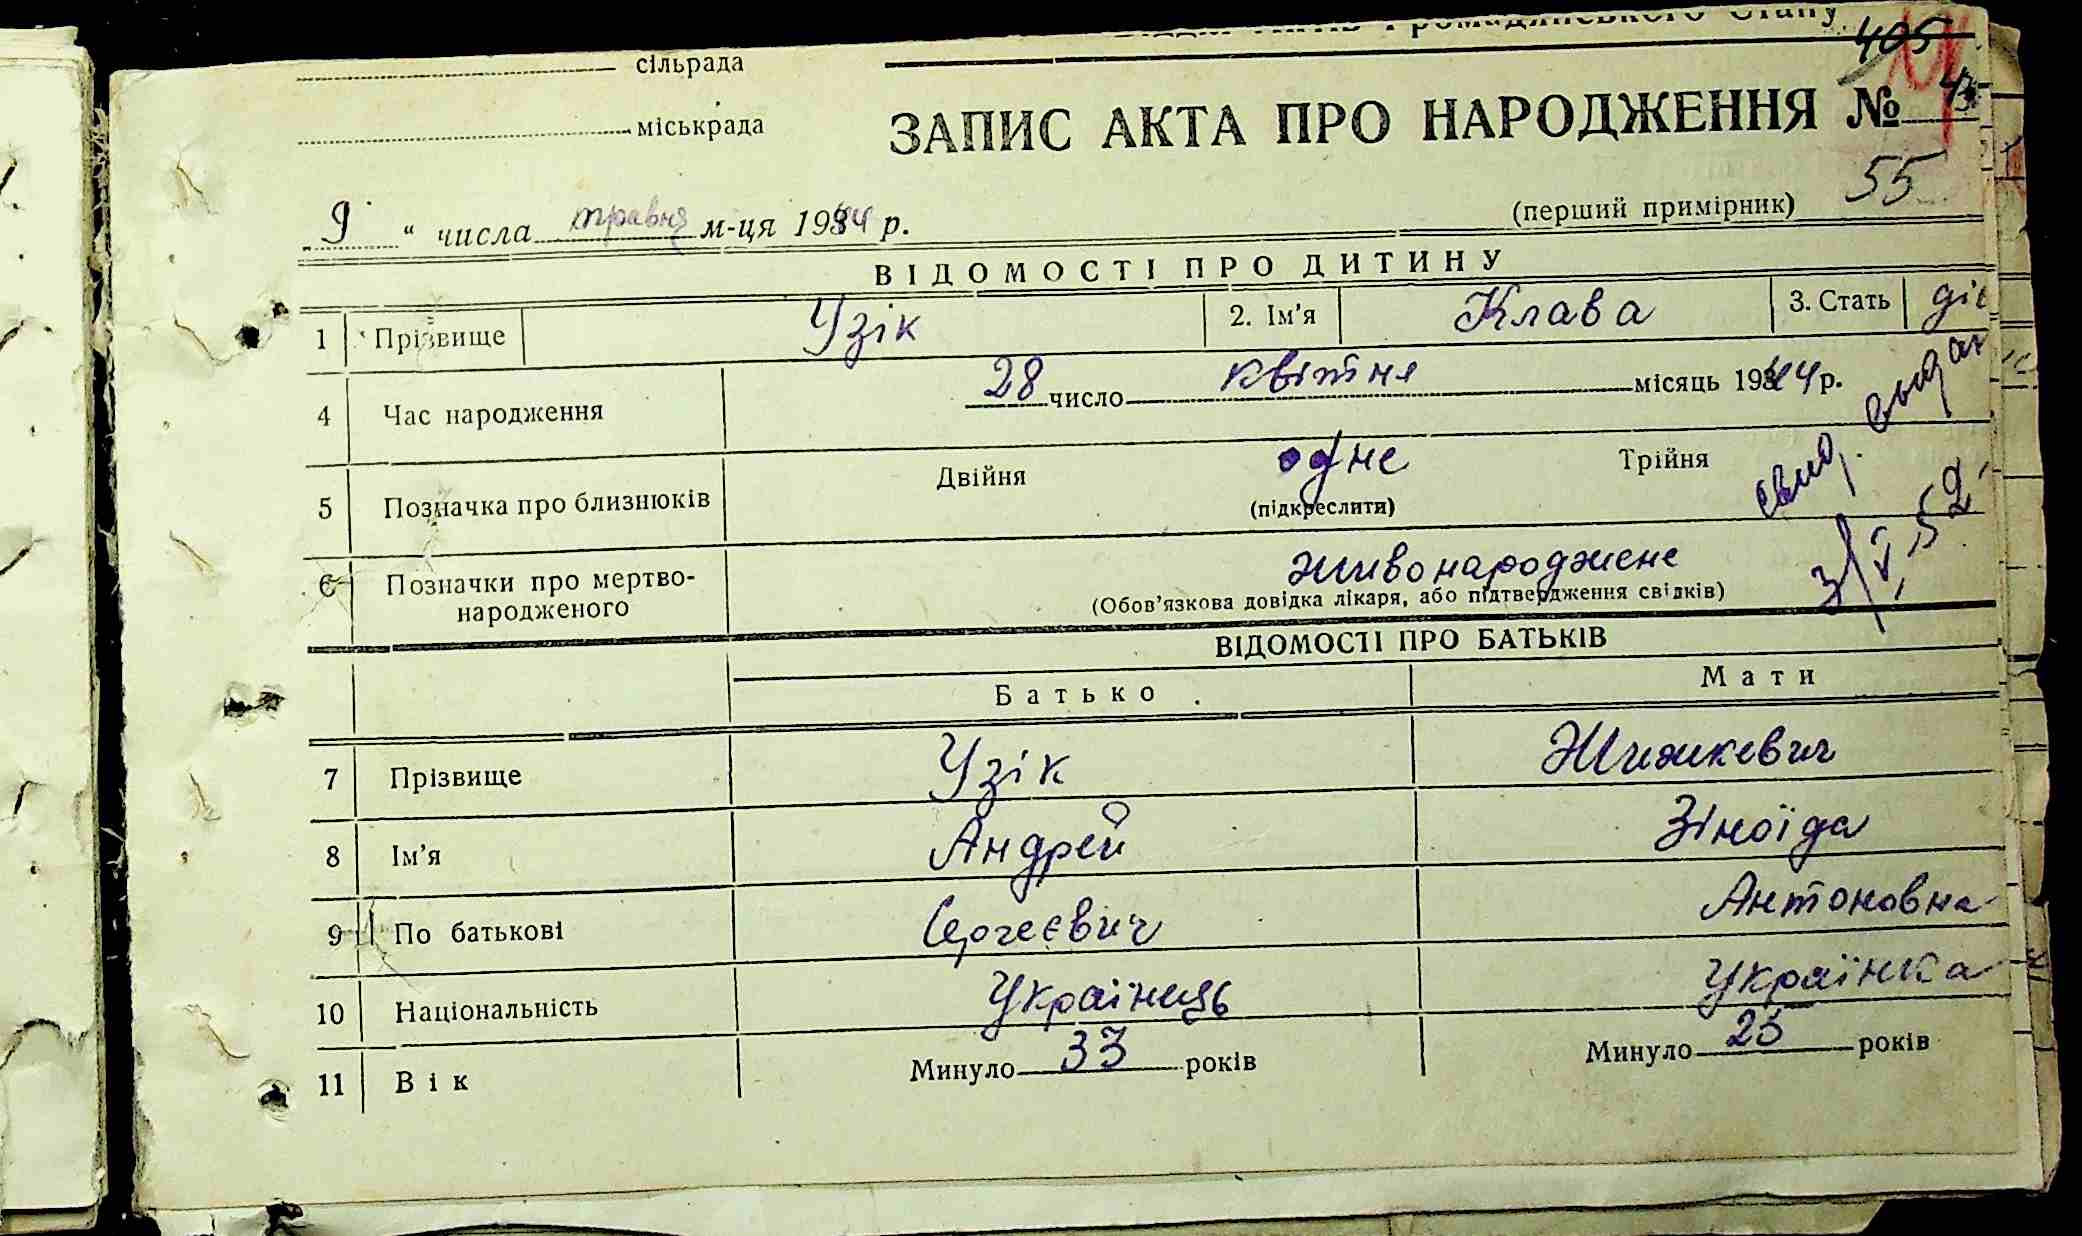 Громадянського Стану
сільрада
405
міськрада
ЗАПИС АКТА ПРО НАРОДЖЕННЯ № 43
55
9 " числа травня м-ця 1944 р.
(перший примірник)
ВІДОМОСТІ ПРО ДИТИНУ
1 Прізвище Узік 2. Ім'я Клава 3. Стать діє
4 Час народження 28 число квітня місяць 1944 р.
5 Позначка про близнюків Двійня одне Трійня
(підкреслити)
свид. выдан
3/V.52.
6 Позначки про мертво-
народженого
живонароджене
(Обов'язкова довідка лікаря, або підтвердження свідків)
ВІДОМОСТІ ПРО БАТЬКІВ
Батько Мати
7 Прізвище Узік Жижкевич
8 Ім'я Андрей Зіноїда
9 По батькові Сергеєвич Антоновна
10 Національність Українець Українка
11 Вік Минуло 33 років Минуло 25 років